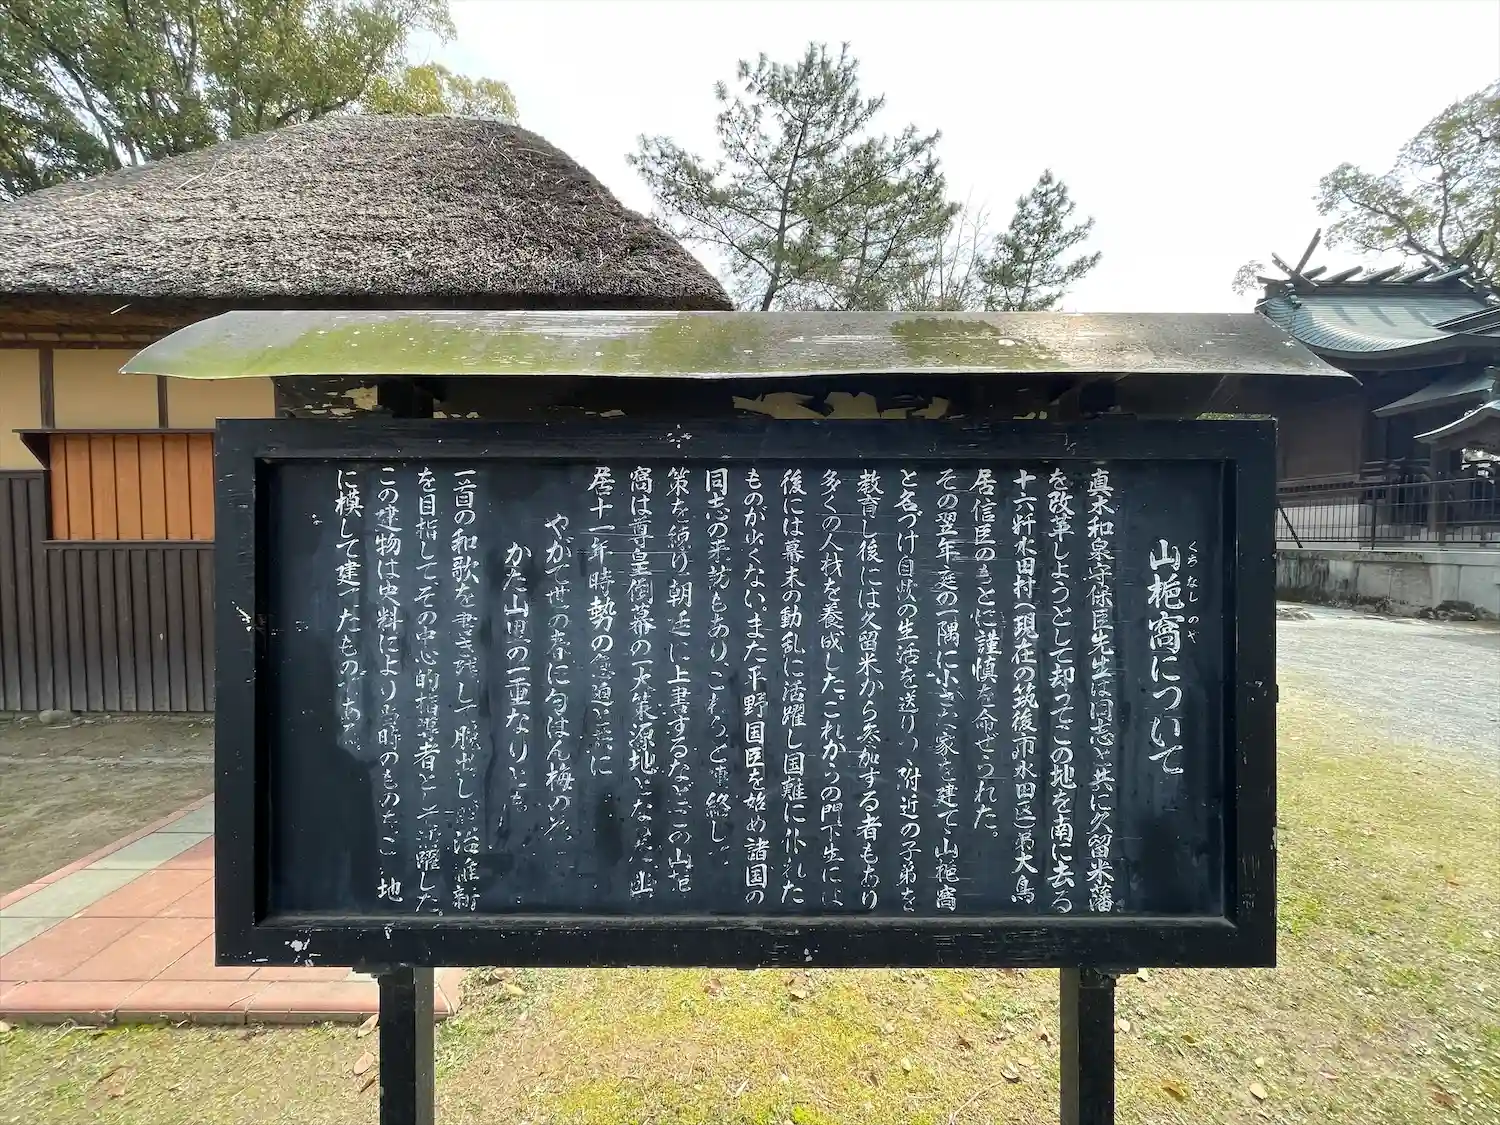 くちなしのや
山梔窩について
真木和泉守保臣先生は同志と共に久留米藩
を改革しようとして却ってこの地を南に去る
十六粁水田村(現在の筑後市水田区)弟大鳥
居信臣のもとに謹慎を命ぜられた。
その翌年庭の一隅に小さな家を建て山梔窩
と名づけ自炊の生活を送りつ 附近の子弟を
教育し後には久留米から参加する者もあり
多くの人材を養成した。これからの門下生には
後には幕末の動乱に活躍し国難に仆れた
ものが少くない。また平野国臣を始め諸国の
同志の来訪もあり、これらと 終し
策を練り朝廷に上書するなどこの山梔
窩は尊皇倒幕の一大策源地となった 幽
居十一年時勢の急迫と共に
やがて世の春に匂はん梅の花
かた山里の一重なりとも
一首の和歌を書き残して脱出し 治維新
を目指してその中心的指導者として活躍した。
この建物は史料により当時のものをこ 地
に模して建てたものである